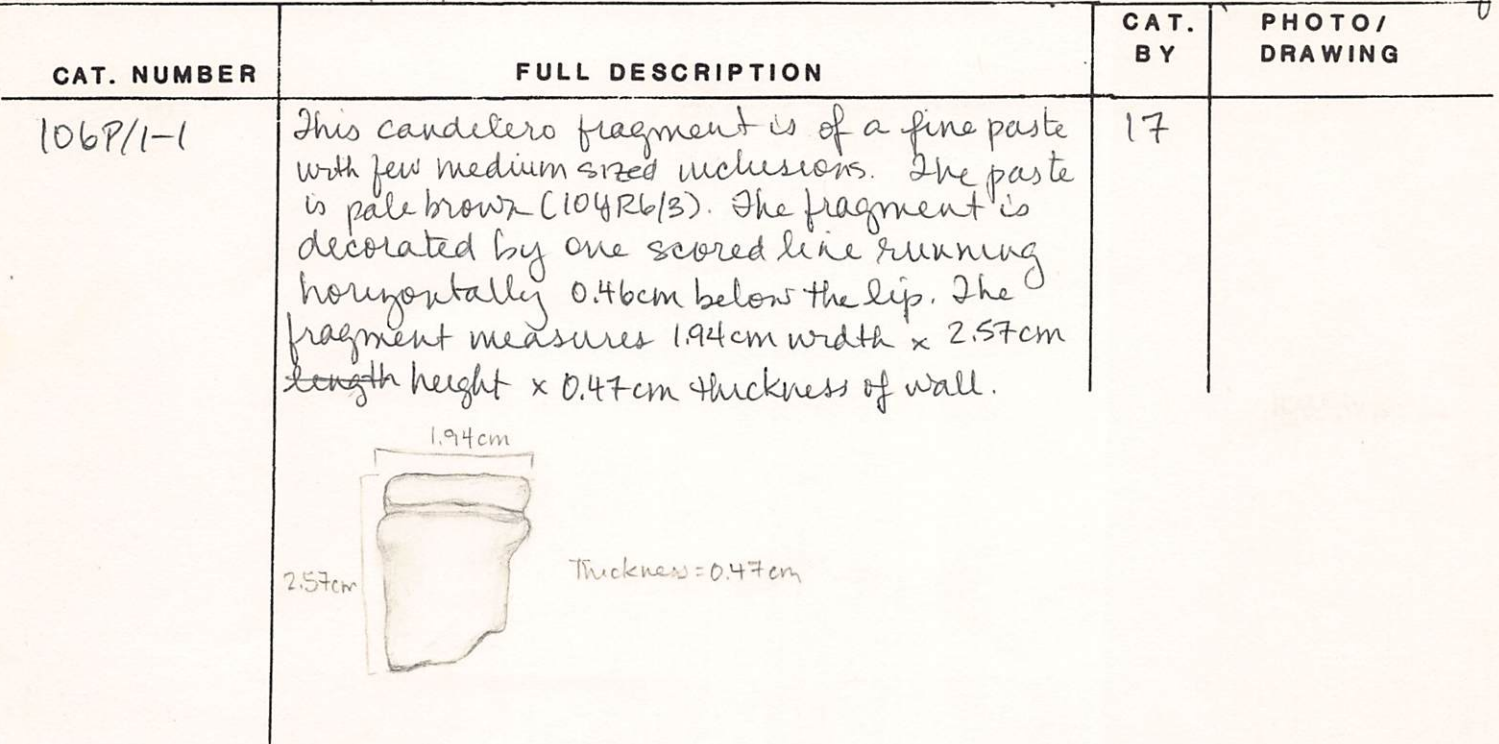 CAT. NUMBER
FULL DESCRIPTION
CAT. BY
PHOTO/ DRAWING
106P/1-1
This candelero fragment is of a fine paste
with few medium sized inclusions. The paste
is pale brown (10YR6/3). The fragment is
decorated by one scored line running
horizontally 0.46cm below the lip. The
fragment measures 1.94cm width x 2.57cm
length height x 0.47cm thickness of wall.
17
1.94cm
2.57cm
Thickness=0.47cm